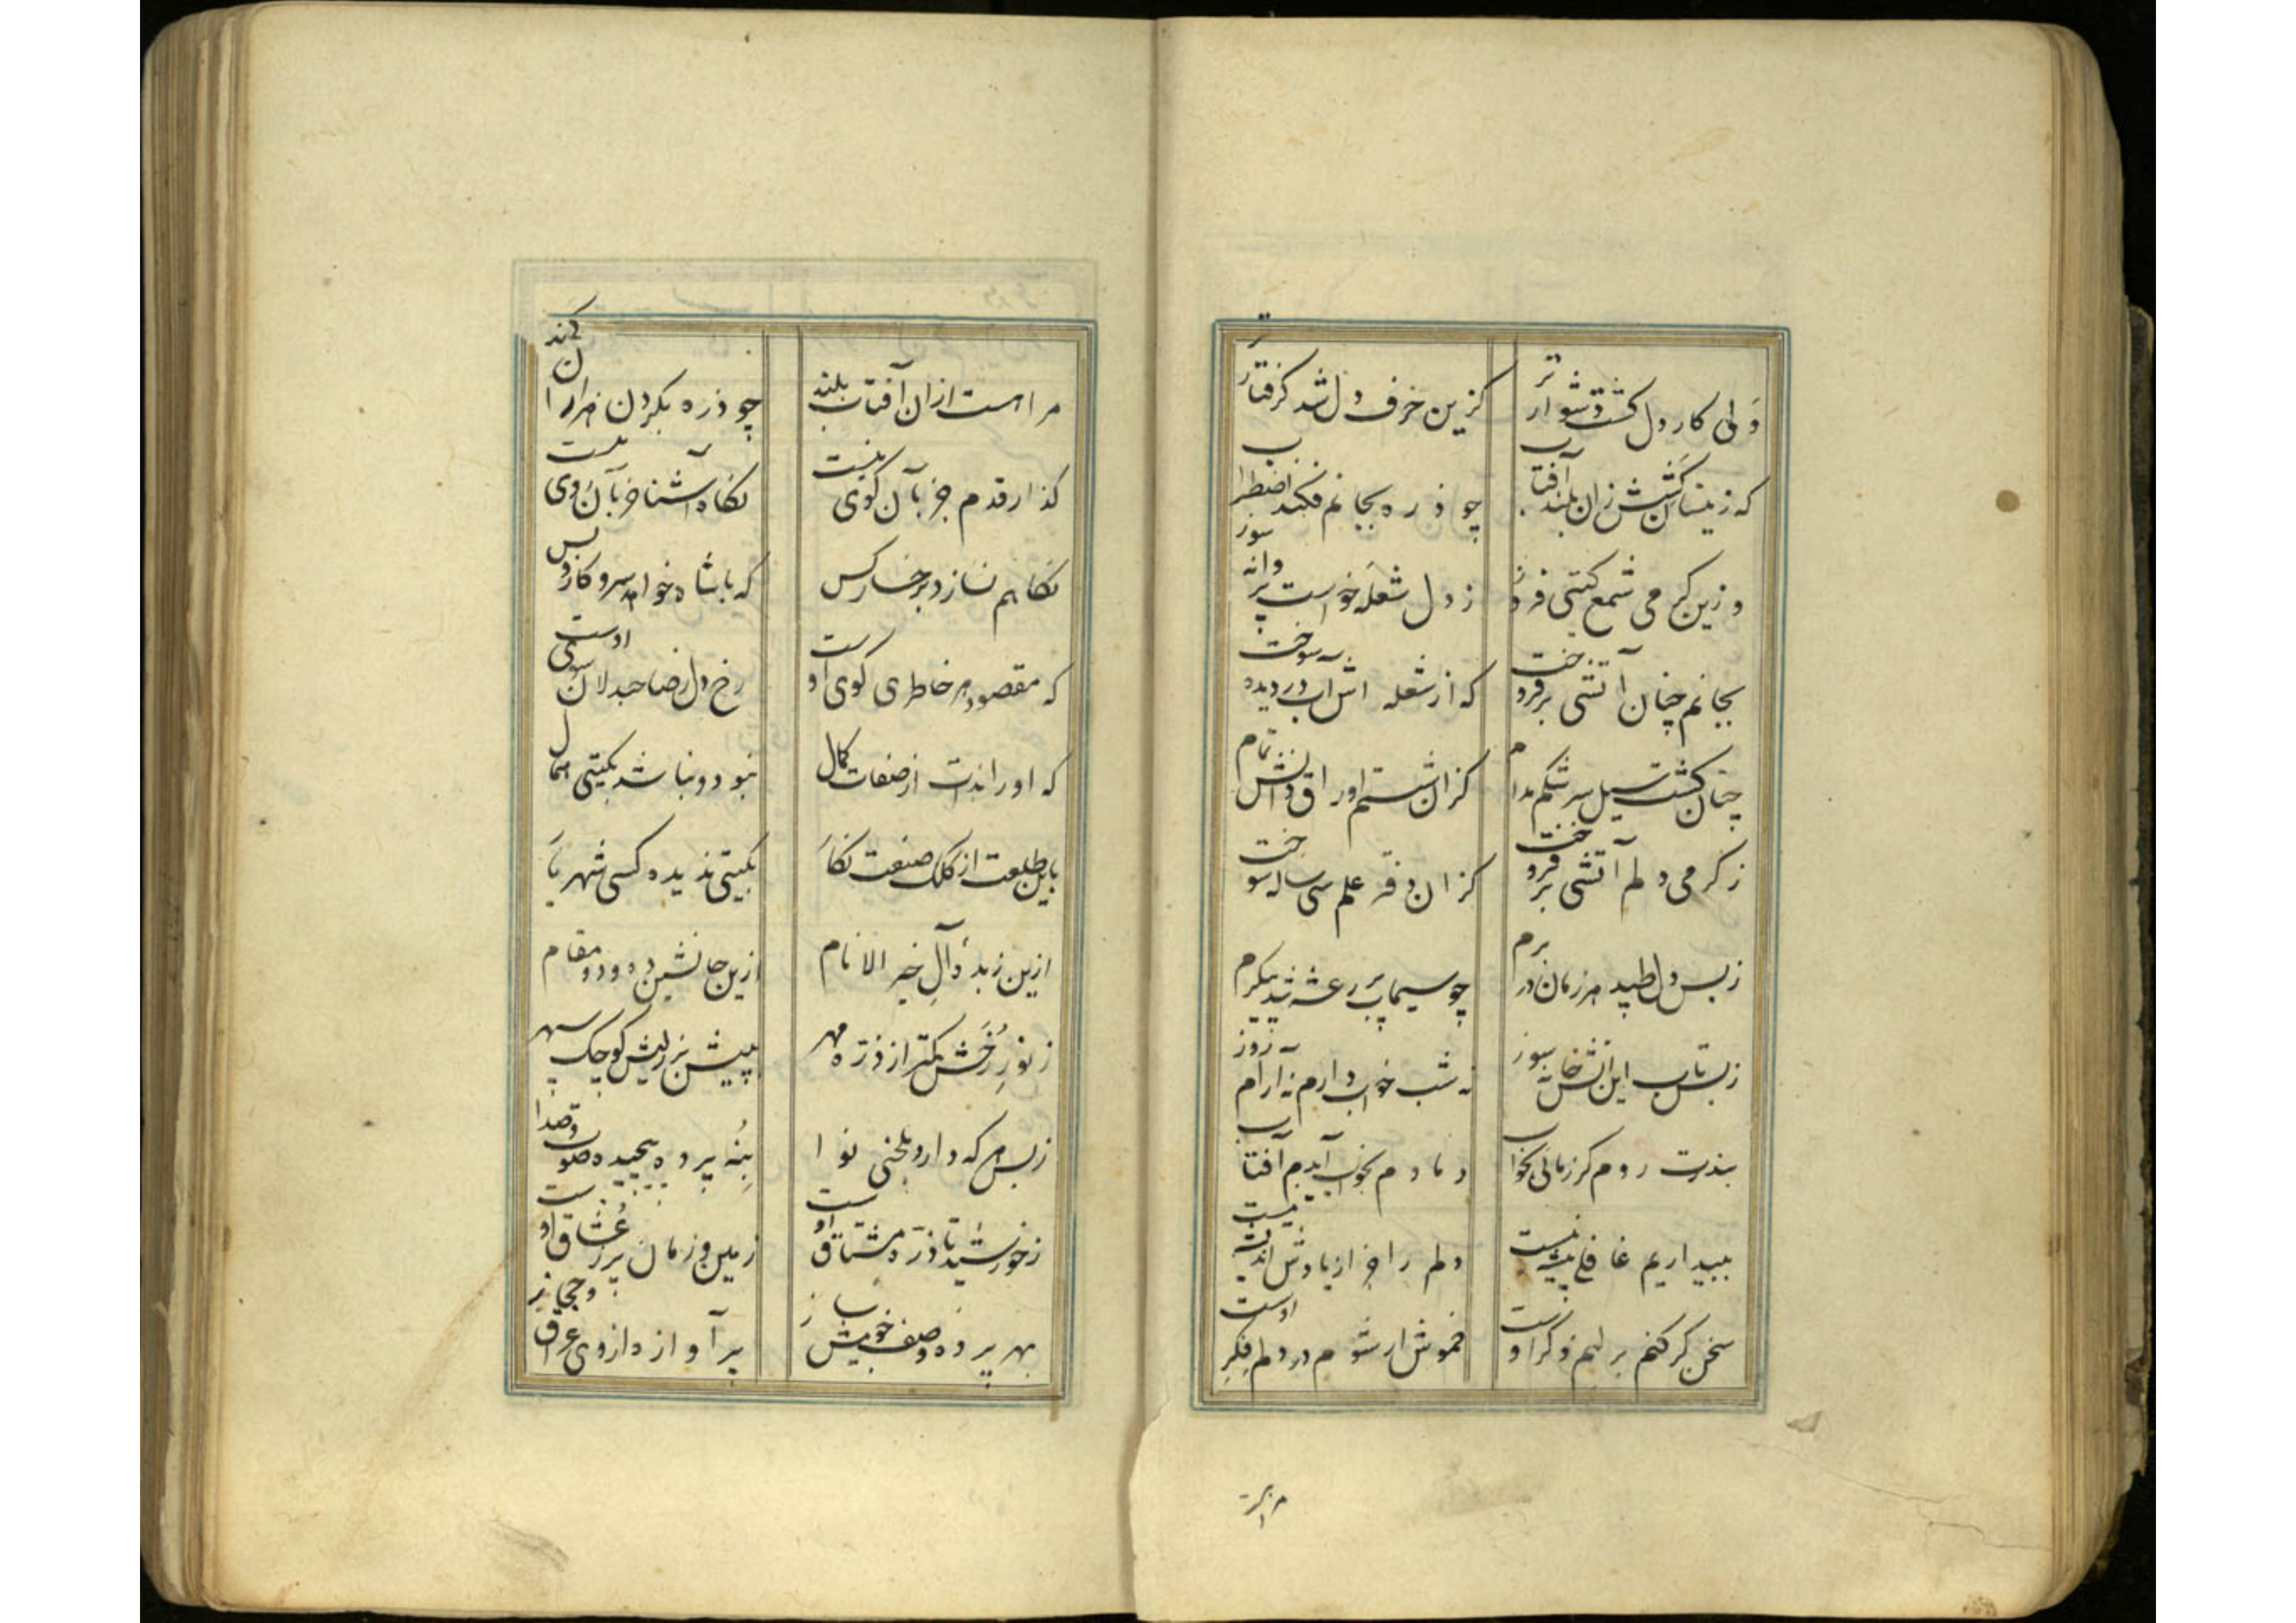 ولی کار دل گشت دشوارتر
کزین حرف دل شد گرفتارتر
که زینسان کشش زان بلند آفتاب
چو ذره بجانم فکند اضطراب
وزین گرمی شمع گیتی فروز
ز دل شعله خواست پروانه سوز
بجانم چنان آتشی برفروخت
که از شعله اش آب در دیده سوخت
چنان گشت سیل سرشکم مدام
کزان شستم اوراق دانش تمام
ز گرمی دلم آتشی برفروخت
کزان دفتر علم سی ساله سوخت
زبس دل طپید هر زمان در برم
چو سیماب پر رعشه شد پیکرم
زبس تاب این آتش خانه سوز
نه شب خواب دارم نه آرام روز
بندرت روم گر زمانی بخواب
دمادم بخواب آیدم آفتاب
ببیداریم غافلی پیشه نیست
دلم را جز از یادش اندیشه نیست
سخن گر کنم بر لبم ذکر اوست
خموش ار شوم در دلم فکر اوست
مرا هست
مرا هست ازان آفتاب بلند
چو ذره بگردن هزاران کمند
گذار قدم جز بآن کوی نیست
نگاه آشنا جز بآن روی نیست
نگاهم نسازد برخسار کس
که با شاه خوبان سروکار و بس
که مقصود هر خاطری کوی اوست
رخ دل ز صاحبدلان سوی اوست
که او راندست از صفات کمال
نبود و نباشد بگیتی همال
باین طلعت از کلک صنعت نگار
بگیتی ندیده کسی شهریار
ازین زبدهٔ آل خیر الانام
ازین جانشین ده و دو مقام
ز نور رخش کمتر از ذره مهر
به پیش بزرگیش کوچک سپهر
زبس هر که دارد بلحنی نوا
بنه پرده پیچیده صوت و صدا
ز خورشید تا ذره مشتاق اوست
زمین و زمان پر ز عشاق اوست
بهر پرده وصف خوبیش ساز
پر آوازه از وی عراق و حجاز